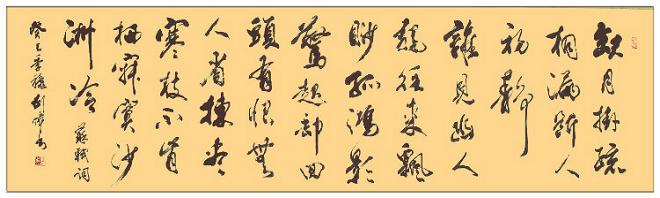 缺月掛疏
桐漏斷人
初靜
誰見幽人
獨往來飄
眇孤鴻影
驚起卻回
頭有恨無
人省揀盡
寒枝不肯
栖寂寞沙
洲冷 蘇軾詞
癸巳季穐